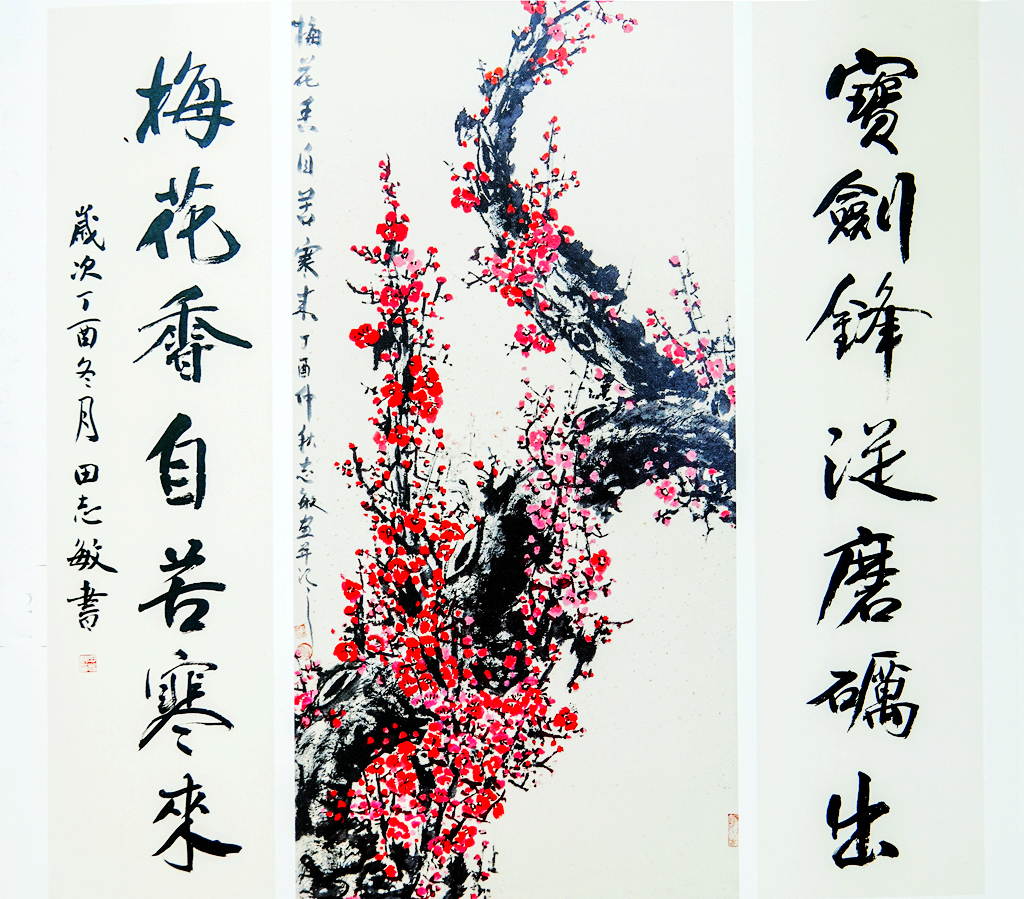 寶劍鋒從磨礪出
梅花香自苦寒來
歲次丁酉冬月田志敏書
梅花香自苦寒來丁酉仲秋志敏畫并记